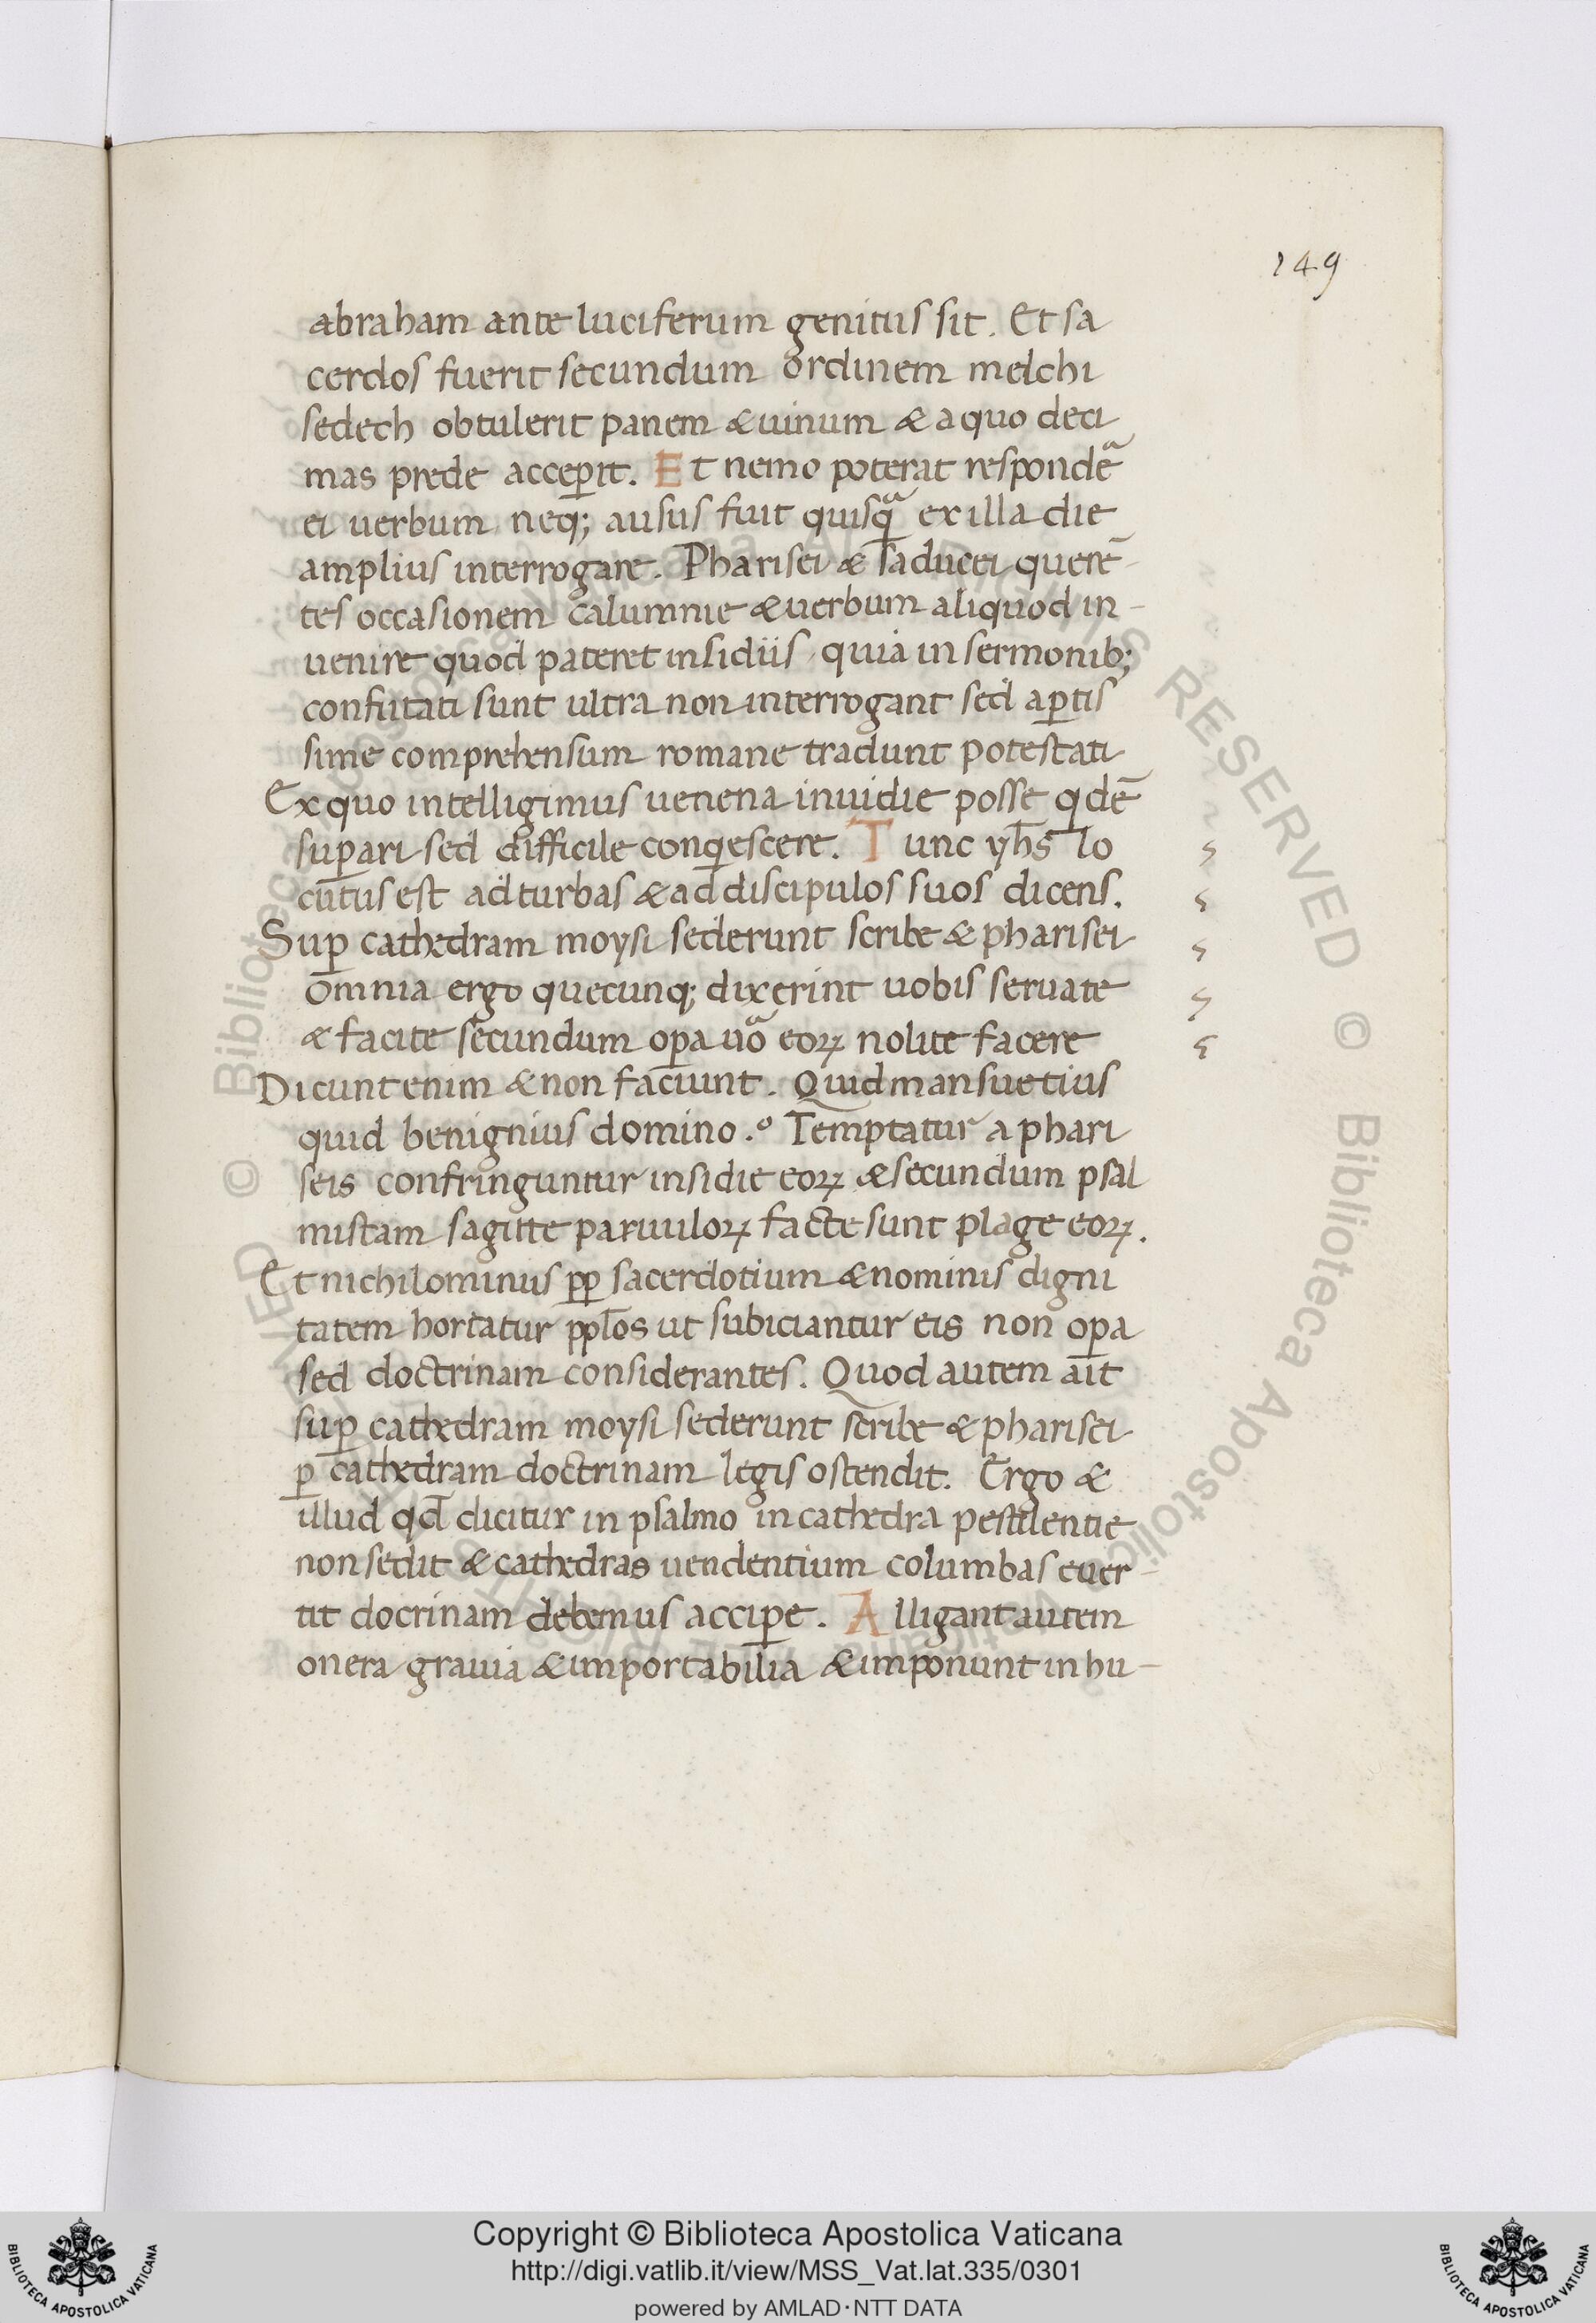 149
abraham ante luciferum genitus sit. Et sa
cerdos fuerit secundum ordinem melchi
sedech obtulerit panem & uinum & a quo deci
mas prede acceꝑit. Et nemo poterat respondẽ
ei uerbum neq; ausus fuit quisqᷓ ex illa die
amplius interrogare. Pharisei & saducei querẽ-
tes occasionem calumnie & uerbum aliquod in-
uenire quod pateret insidiis, quia in sermonib;
confutati sunt ultra non interrogant sed aꝑtis
sime comprehensum romane tradunt potestati
Ex quo intelligimus uenena inuidie posse qdẽ
suꝑari sed difficile conqescere. Tunc yh̅s lo
cutus est ad turbas & ad discipulos suos dicens.
Suꝑ cathedram moysi sederunt scribe & pharisei
omnia ergo quecunq; dixerint uobis seruate
& facite secundum oꝑa uͦo eoꝝ nolite facere
Dicunt enim & non faciunt. Quid mansuetius
quid benignius domino.° Temptatur a phari
seis confringuntur insidie eoꝝ & secundum psal
mistam sagitte paruuloꝝ facte sunt plage eoꝝ.
Et nichilominus ꝓꝑ sacerdotium & nominis digni
tatem hortatur ppl̅os ut subiciantur eis non oꝑa
sed doctrinam considerantes. Quod autem ait
suꝑ cathedram moysi sederunt scribe & pharisei
ꝑ cathedram doctrinam legis ostendit. Ergo &
illud qd̅ dicitur in psalmo in cathedra pestilentie
non sedit & cathedras uendentium columbas euer-
tit docrinam debemus acciꝑe. Alligant autem
onera grauia & importabilia & imponunt in hu-
© Biblioteca Apostolica Vaticana
RESERVED © Biblioteca Apostolica
BIBLIOTECA APOSTOLICA VATICANA
Copyright © Biblioteca Apostolica Vaticana
http://digi.vatlib.it/view/MSS_Vat.lat.335/0301
powered by AMLAD·NTT DATA
BIBLIOTECA APOSTOLICA VATICANA